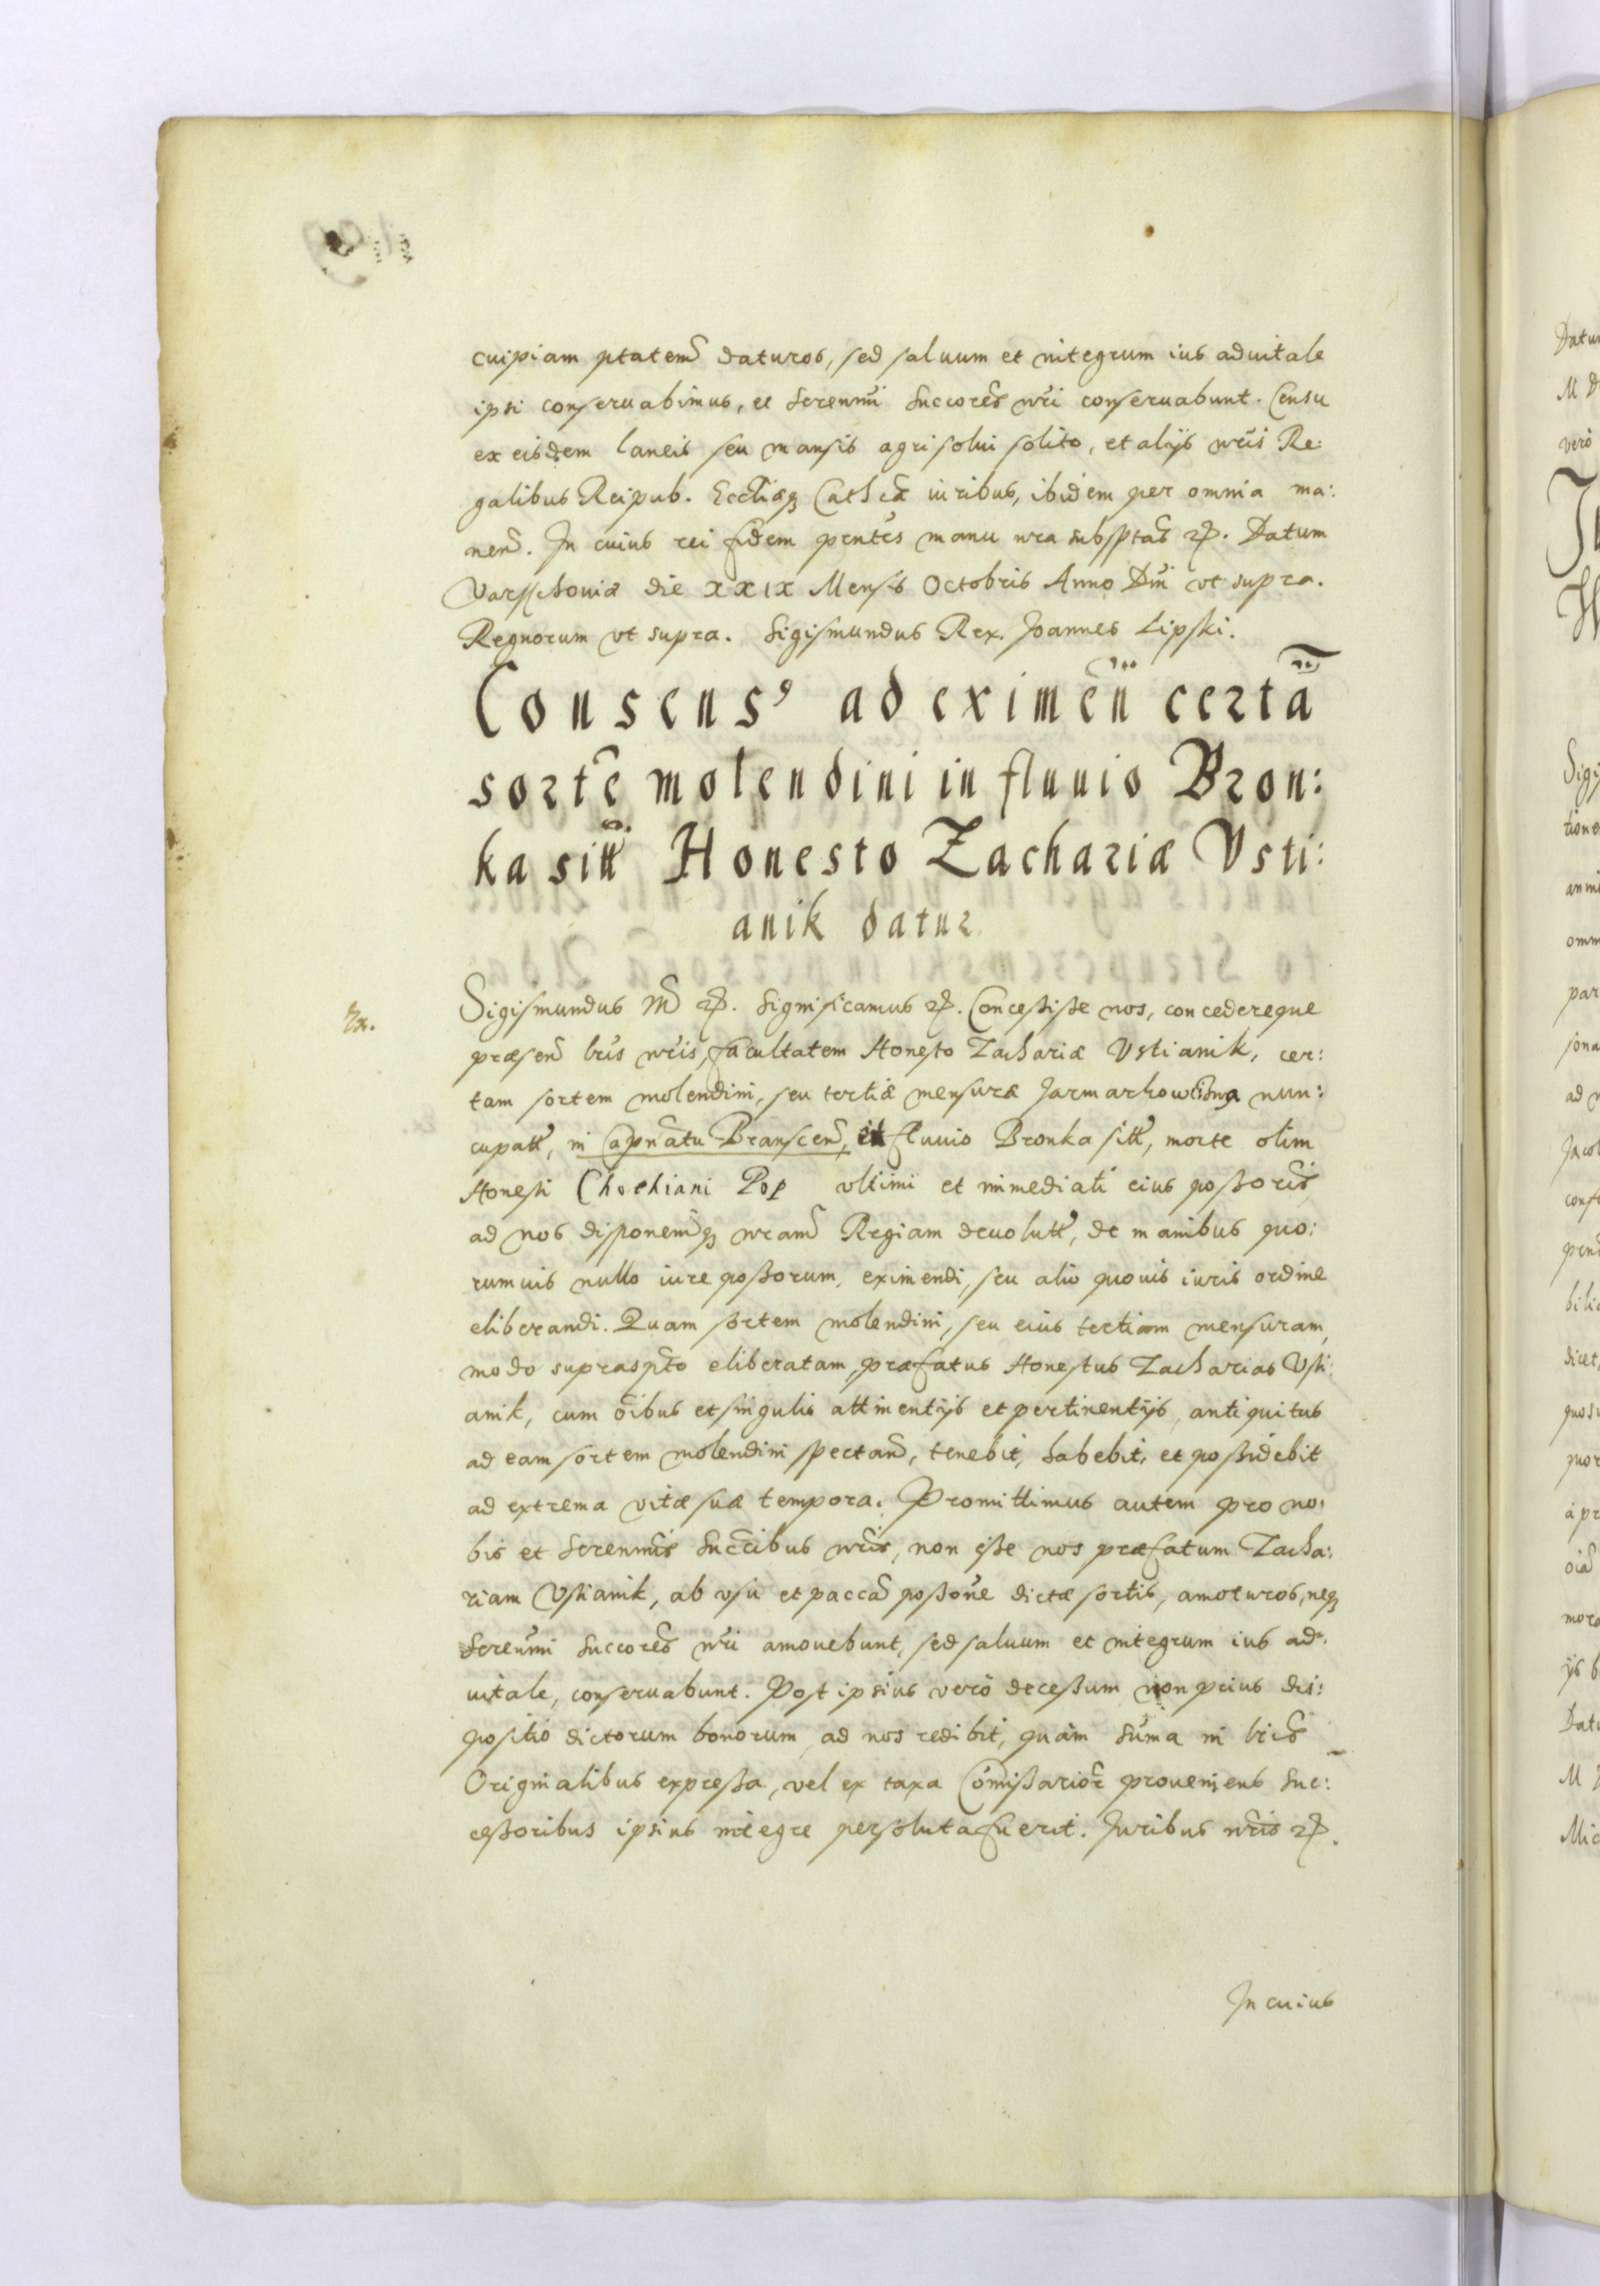 cuipiam ptatem daturos, sed saluum et integrum ius aduitale
ipsi conseruabimus, et Serenmi Succores nri conseruabunt. Censu
ex eisdem laneis seu mansis agri solui solito, et alijs nris Re:
galibus Reipub. Eccliæq Cathcæ iuribus, ibidem per omnia ma:
nen. In cuius rei fidem pntes manu nra subsptas etc. Datum
Varsschouiæ die XXIX Mensis Octobris Anno Dni vt supra.
Regnorum vt supra. Sigismundus Rex. Joannes Lipski.
Consens9 ad eximen certã
sortẽ molendini in fluuio Bron:
ka sitt Honesto Zachariæ Vsti:
anik datur
Ex.
Sigismundus III etc. Significamus etc. Concessisse nos, concedereque
præsen lris nris, facultatem Honesto Zachariæ Vstianik, cer:
tam sortem molendini, seu tertiæ mensuræ Jarmarkowschina nun:
cupatt, in Capnatu Branscen, in fluuio Bronka sitt, morte olim
Honesti Chochiani Pop vltimi et immediati eius possoris
ad nos disponemq nram Regiam deuolutt, de manibus quo:
rumuis nullo iure possorum, eximendi, seu alio quouis iuris ordine
eliberandi. Quam sortem molendini, seu eius tertiam mensuram,
modo suprascpto eliberatam, præfatus Honestus Zacharias Vsti:
anik, cum oibus et singulis attinentijs et pertinentijs, antiquitus
ad eam sortem molendini spectan, tenebit, habebit, et possidebit
ad extrema vitæ suæ tempora. Promittimus autem pro no:
bis et Serenmis Succribus nris, non esse nos præfatum Zacha:
riam Vstianik, ab vsu et paccã possone dictæ sortis, amoturos, neq
Serenmi Succores nri amouebunt, sed saluum et integrum ius ad:
uitale, conseruabunt. Post ipsius verò decessum non prius dis:
positio dictorum bonorum, ad nos redibit, quàm suma in lris
Originalibus expressa, vel ex taxa Comissarior proueniens suc:
cessoribus ipsius integre persoluta fuerit. Juribus nris etc.
In cuius